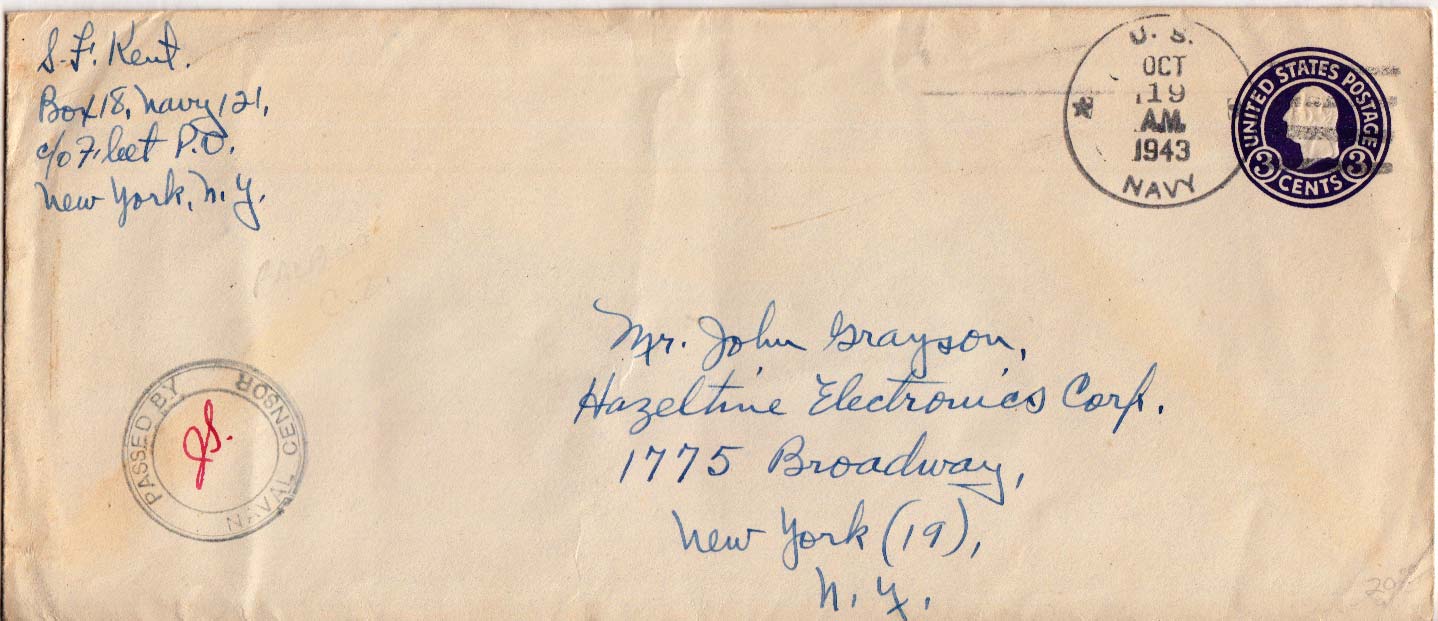 S. F. Kent.
Box 18, Navy 121,
c/o Fleet P.O.
New York, N.Y.
U. S.
OCT
19
A.M.
1943
NAVY
UNITED STATES POSTAGE
3 CENTS 3
PASSED BY
NAVAL CENSOR
JS.
Mr. John Grayson,
Hazeltine Electronics Corp.
1775 Broadway,
New York (19),
N.Y.